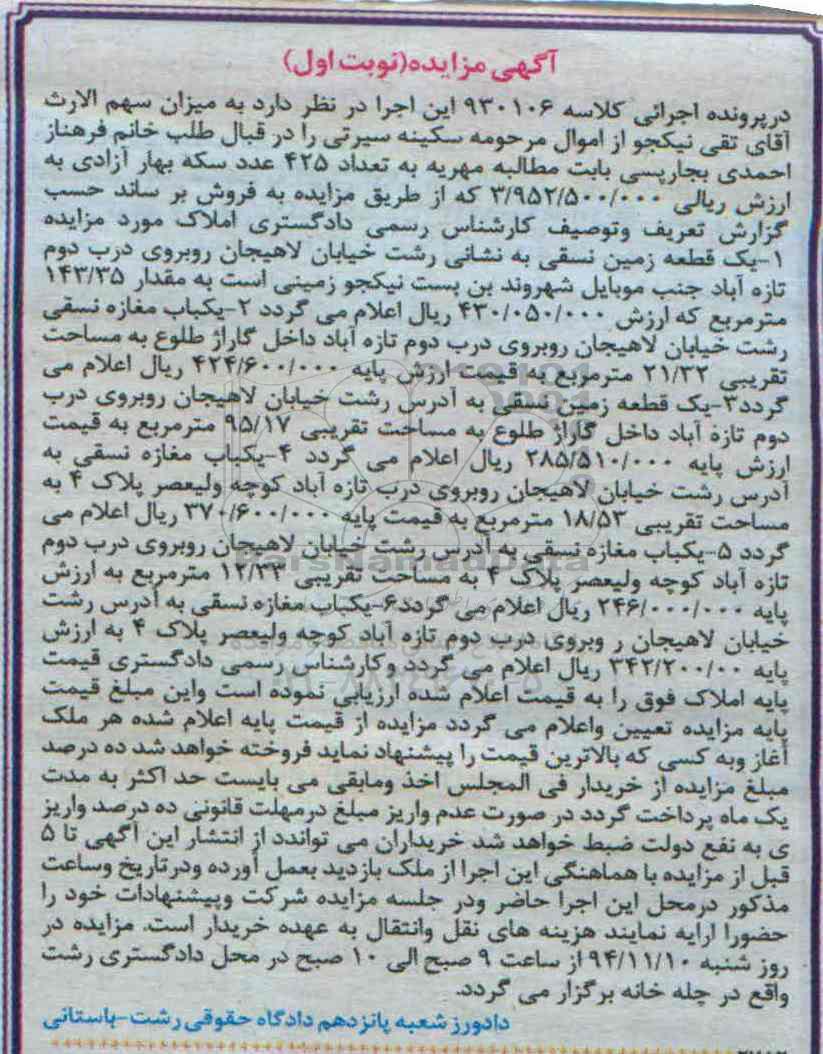 آگهی مزایده(نوبت اول)
درپرونده اجرائی کلاسه ۹۳۰۱۰۶ این اجرا در نظر دارد به میزان سهم الارث
آقای تقی نیکجو از اموال مرحومه سکینه سیرتی را در قبال طلب خانم فرهناز
احمدی بجارپسی بابت مطالبه مهریه به تعداد ۴۲۵ عدد سکه بهار آزادی به
ارزش ریالی ۳/۹۵۲/۵۰۰/۰۰۰ که از طریق مزایده به فروش بر ساند حسب
گزارش تعریف وتوصیف کارشناس رسمی دادگستری املاک مورد مزایده
۱-یک قطعه زمین نسقی به نشانی رشت خیابان لاهیجان روبروی درب دوم
تازه آباد جنب موبایل شهروند بن بست نیکجو زمینی است به مقدار ۱۴۳/۳۵
مترمربع که ارزش ۴۳۰/۰۵۰/۰۰۰ ریال اعلام می گردد ۲-یکباب مغازه نسقی
رشت خیابان لاهیجان روبروی درب دوم تازه آباد داخل گاراژ طلوع به مساحت
تقریبی ۲۱/۳۲ مترمربع به قیمت ارزش پایه ۴۲۴/۶۰۰/۰۰۰ ریال اعلام می
گردد۳-یک قطعه زمین نسقی به آدرس رشت خیابان لاهیجان روبروی درب
دوم تازه آباد داخل گاراژ طلوع به مساحت تقریبی ۹۵/۱۷ مترمربع به قیمت
ارزش پایه ۲۸۵/۵۱۰/۰۰۰ ریال اعلام می گردد ۴-یکباب مغازه نسقی به
آدرس رشت خیابان لاهیجان روبروی درب تازه آباد کوچه ولیعصر پلاک ۴ به
مساحت تقریبی ۱۸/۵۳ مترمربع به قیمت پایه ۳۷۰/۶۰۰/۰۰۰ ریال اعلام می
گردد ۵-یکباب مغازه نسقی به آدرس رشت خیابان لاهیجان روبروی درب دوم
تازه آباد کوچه ولیعصر پلاک ۴ به مساحت تقریبی ۱۲/۳۳ مترمربع به ارزش
پایه ۲۴۶/۰۰۰/۰۰۰ ریال اعلام می گردد۶-یکباب مغازه نسقی به آدرس رشت
خیابان لاهیجان ر وبروی درب دوم تازه آباد کوچه ولیعصر پلاک ۴ به ارزش
پایه ۳۴۲/۲۰۰/۰۰ ریال اعلام می گردد وکارشناس رسمی دادگستری قیمت
پایه املاک فوق را به قیمت اعلام شده ارزیابی نموده است واین مبلغ قیمت
پایه مزایده تعیین واعلام می گردد مزایده از قیمت پایه اعلام شده هر ملک
آغاز وبه کسی که بالاترین قیمت را پیشنهاد نماید فروخته خواهد شد ده درصد
مبلغ مزایده از خریدار فی المجلس اخذ ومابقی می بایست حد اکثر به مدت
یک ماه پرداخت گردد در صورت عدم واریز مبلغ درمهلت قانونی ده درصد واریز
ی به نفع دولت ضبط خواهد شد خریداران می تواندد از انتشار این آگهی تا ۵
قبل از مزایده با هماهنگی این اجرا از ملک بازدید بعمل آورده ودرتاریخ وساعت
مذکور درمحل این اجرا حاضر ودر جلسه مزایده شرکت وپیشنهادات خود را
حضورا ارایه نمایند هزینه های نقل وانتقال به عهده خریدار است. مزایده در
روز شنبه ۹۴/۱۱/۱۰از ساعت ۹ صبح الی ۱۰ صبح در محل دادگستری رشت
واقع در چله خانه برگزار می گردد.
دادورز شعبه پانزدهم دادگاه حقوقی رشت-باستانی
ParsNamadData